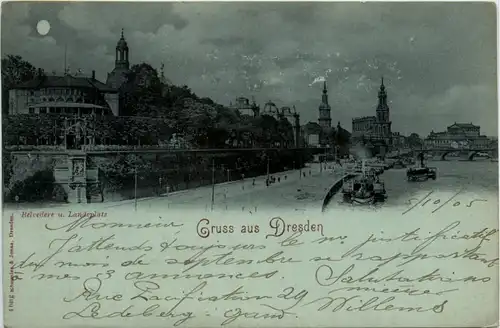 Belvedere u. Landeplatz
Gruss aus Dresden
5/10/05
Monsieur,
J'attends toujours le justificatif
du mois de septembre se rapportant
à mes 3 annonces. Salutations
Rue Pacification 29
Ledeberg - gand. Willems